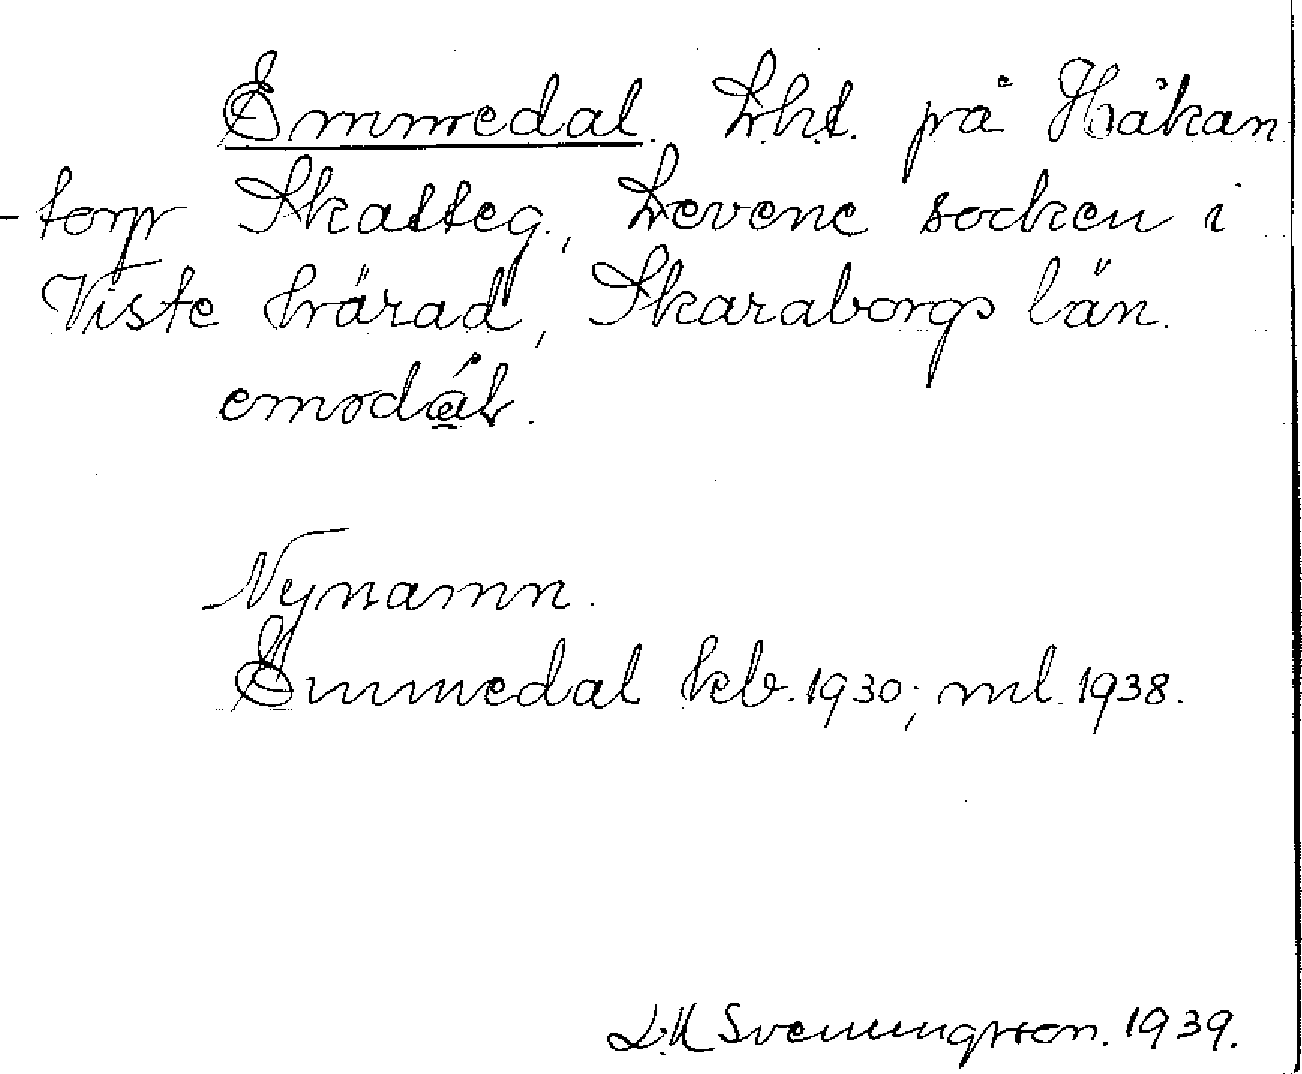 Emmedal. Lht. på Håkan
-torp Skatteg., Levene socken i
Viste härad, Skaraborgs län.
Nynamn.
Emmedal kb. 1930; ml. 1938.
Svenungsson. 1939.